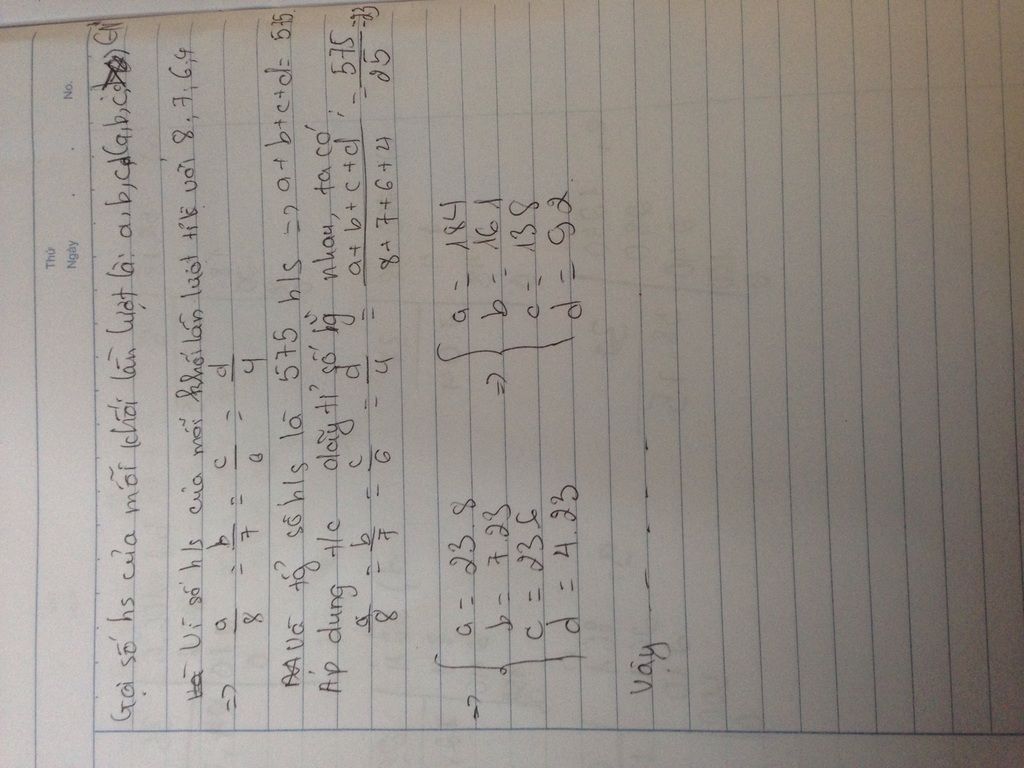 Thứ
Ngày
No.
Gọi số hs của mỗi khối lần lượt là: a, b, c, d (a, b, c,
Vì số h/s của mỗi khối lần lượt tỉ lệ với 8, 7, 6, 4
=> a/8 = b/7 = c/6 = d/4
Và tổg số h/s là 575 h/s => a+b+c+d = 575
Áp dụng t/c dãy tỉ số bg nhau, ta có
a/8 = b/7 = c/6 = d/4 = a+b+c+d/8+7+6+4 = 575/25 = 23
=> { a = 23.8 => { a = 184
b = 7.23 b = 161
c = 23.6 c = 138
d = 4.23 d = 92
Vậy - - - - -